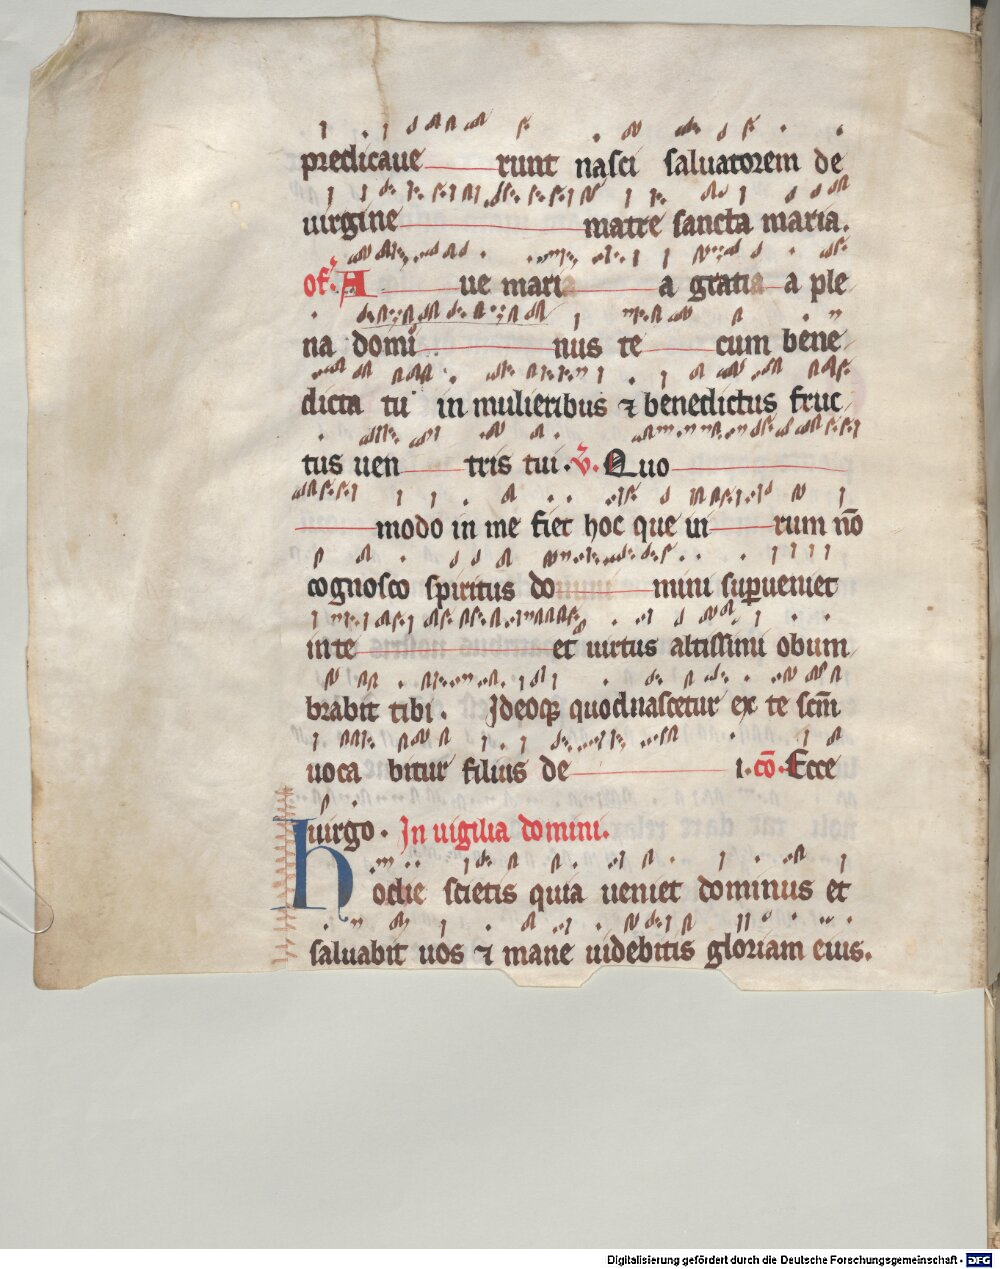 predicaue runt nasci saluatorem de
uirgine matre sancta maria.
of. Aue maria a gratia a ple
na domi nus te cum bene
dicta tu in mulieribus ⁊ benedictus fruc
tus uen tris tui. v̄. Quo
modo in me fiet hoc que ui rum nō
cognosco spiritus do mini sup̱ueniet
in te et uirtus altissimi obum
brabit tibi. Ideoqꝫ quod nascetur ex te scm̄
uoca bitur filius de i. cō. Ecce
uirgo. In uigilia domini.
hodie scietis quia ueniet dominus et
saluabit uos ⁊ mane uidebitis gloriam eius.
Digitalisierung gefördert durch die Deutsche Forschungsgemeinschaft - DFG